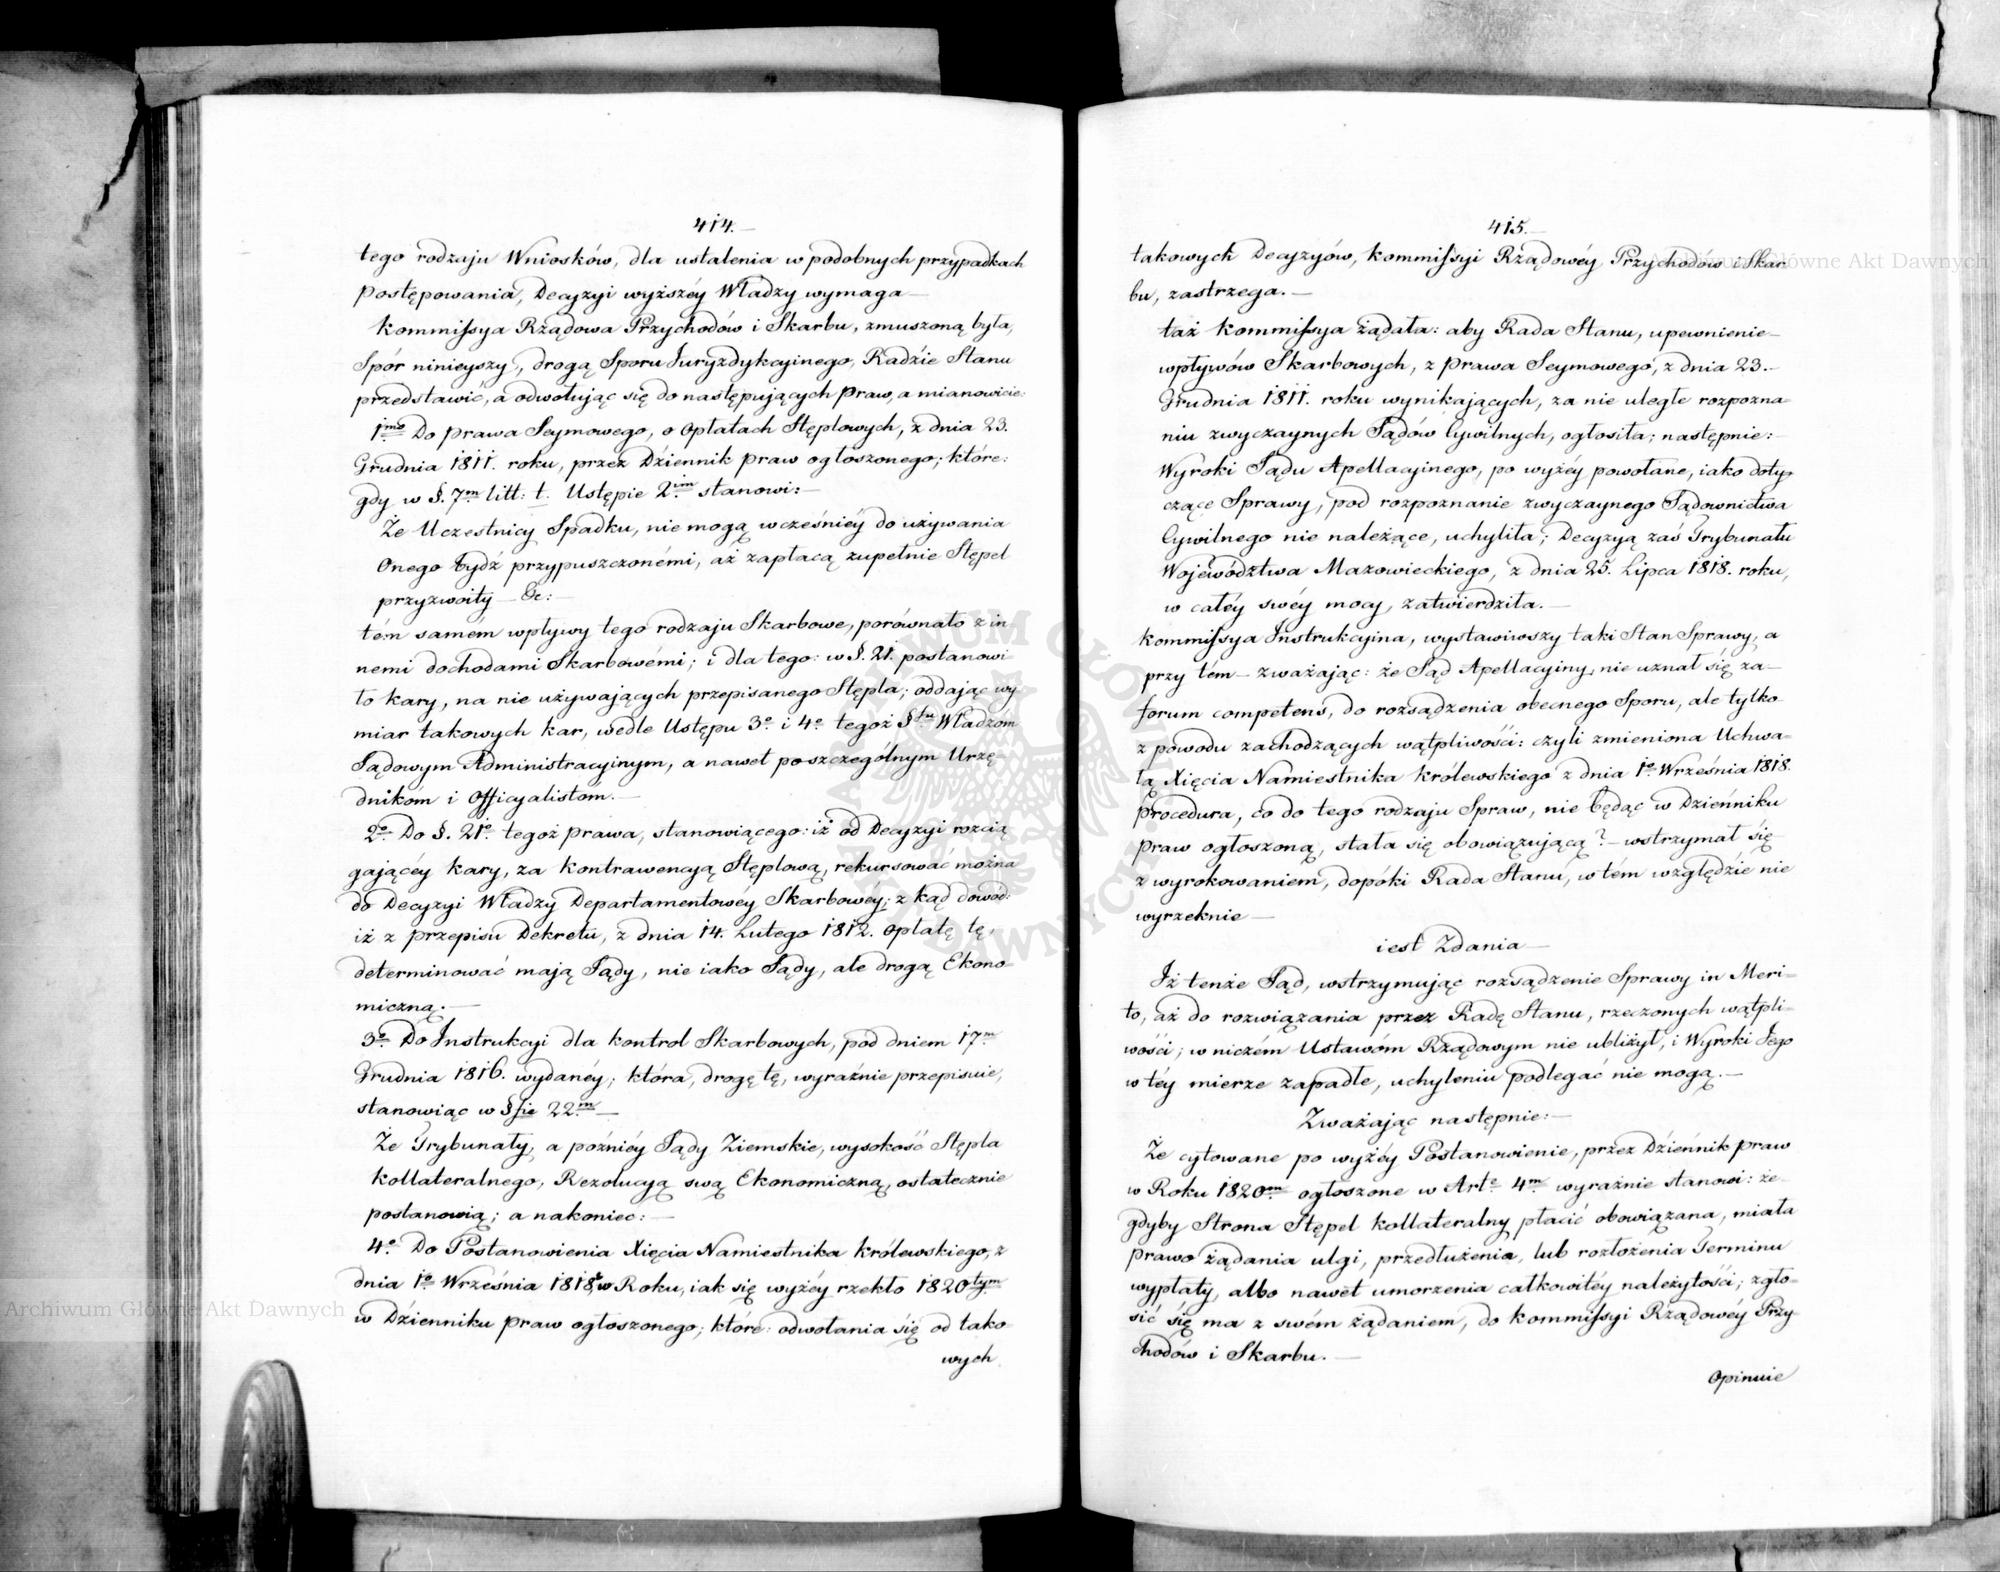 414.
tego rodzaju Wniosków, dla ustalenia w podobnych przypadkach
postępowania, Decyzyi wyższéy Władzy wymaga —
Kommissya Rządowa Przychodów i Skarbu, zmuszoną była,
Spór ninieyszy, drogą Sporu Juryzdykcyinego, Radzie Stanu
przedstawić, a odwołując się do następujących Praw, a mianowicie:
1mo Do Prawa Seymowego, o Opłatach Stęplowych, z dnia 23.
Grudnia 1811. roku, przez Dziennik Praw ogłoszonego; które:
gdy w §. 7m litt: t. Ustępie 2im stanowi: —
Że Uczestnicy Spadku, nie mogą wcześniéy do używania
Onego bydź przypuszczonémi, aż zapłacą zupełnie Stępel
przyzwoity — &c: —
tém samém wpływy tego rodzaju Skarbowe, porównało z in-
nemi dochodami Skarbowémi; i dla tego: w §. 21. postanowi-
ło kary, na nie używających przepisanego Stępla; oddając wy-
miar takowych kar, wedle Ustępu 3o i 4o tegoż §fu Władzóm
Sądowym Administracyinym, a nawet poszczególnym Urzę-
dnikóm i Officyalistóm. —
2o Do §. 21o tegoż prawa, stanowiącego: iż od Decyzyi rozcią-
gaiącéy kary, za kontrawencyą Stęplową, rekursować można
do Decyzyi Władzy Departamentowéy Skarbowéy; z kąd dowód:
iż z przepisu Dekretu, z dnia 14. Lutego 1812. opłatę tę,
determinować mają Sądy, nie iako Sądy, ale drogą Ekono-
miczną. —
3o Do Instrukcyi dla kontrol Skarbowych, pod dniem 17m
Grudnia 1816. wydanéy; która, drogę tę, wyraźnie przepisuie,
stanowiąc w §fie 22m —
Że Trybunały, a poźniéy Sądy Ziemskie, wysokość Stępla
kollateralnego, Rezolucyą swą Ekonomiczną, ostatecznie
postanowią; a nakoniec: —
4o Do Postanowienia Xięcia Namiestnika Królewskiego, z
dnia 1o Września 1818, w Roku, iak się wyżéy rzekło 1820tym
w Dzienniku praw ogłoszonego; które: odwołania się od tako-
wych
415.
takowych Decyzyów, Kommissyi Rządowéy Przychodów i Skar-
bu, zastrzega. —
taż Kommissya żądała: aby Rada Stanu, upewnienie
wpływów Skarbowych, z Prawa Seymowego, z dnia 23.
Grudnia 1811. roku wynikających, za nie uległe rozpozna-
niu zwyczaynych Sądów Cywilnych, ogłosiła; następnie:
Wyroki Sądu Apellacyinego, po wyżéy powołane, iako doty-
czące Sprawy, pod rozpoznanie zwyczaynego Sądownictwa
Cywilnego nie należące, uchyliła; Decyzyą zaś Trybunału
Województwa Mazowieckiego, z dnia 25. Lipca 1818. roku,
w całéy swéy mocy, zatwierdziła. —
Kommissya Instrukcyina, wystawiwszy taki Stan Sprawy, a
przy tém — zważając: że Sąd Apellacyiny, nie uznał się za
forum competens, do rozsądzenia obecnego Sporu, ale tylko
z powodu zachodzących wątpliwości: czyli zmieniona Uchwa-
łą Xięcia Namiestnika Królewskiego z dnia 1o Września 1818.
Procedura, co do tego rodzaju Spraw, nie będąc w Dzienniku
Praw ogłoszoną, stała się obowiązującą? — wstrzymał się
z wyrokowaniem, dopóki Rada Stanu, w tém względzie nie
wyrzeknie —
iest Zdania —
Iż tenże Sąd, wstrzymując rozsądzenie Sprawy in Meri-
to, aż do rozwiązania przez Radę Stanu, rzeczonych wątpli-
wości; w niczém Ustawóm Rządowym nie ubliżył, i Wyroki Jego
w téy mierze zapadłe, uchyleniu podlegać nie mogą. —
Zważając następnie: —
Że cytowane po wyżéy Postanowienie, przez Dziennik praw
w Roku 1820m ogłoszone w Arte 4m wyraźnie stanowi: że
gdyby Strona Stępel kollateralny płacić obowiązana, miała
prawo żądania ulgi, przedłużenia, lub rozłożenia Terminu
wypłaty, albo nawet umorzenia całkowitéy należytości; zgło-
sić się ma z swém żądaniem, do Kommissyi Rządowéy Przy-
chodów i Skarbu. —
Opiniuie
Archiwum Główne Akt Dawnych
Archiwum Główne Akt Dawnych
ARCHIWUM GŁÓWNE AKT DAWNYCH